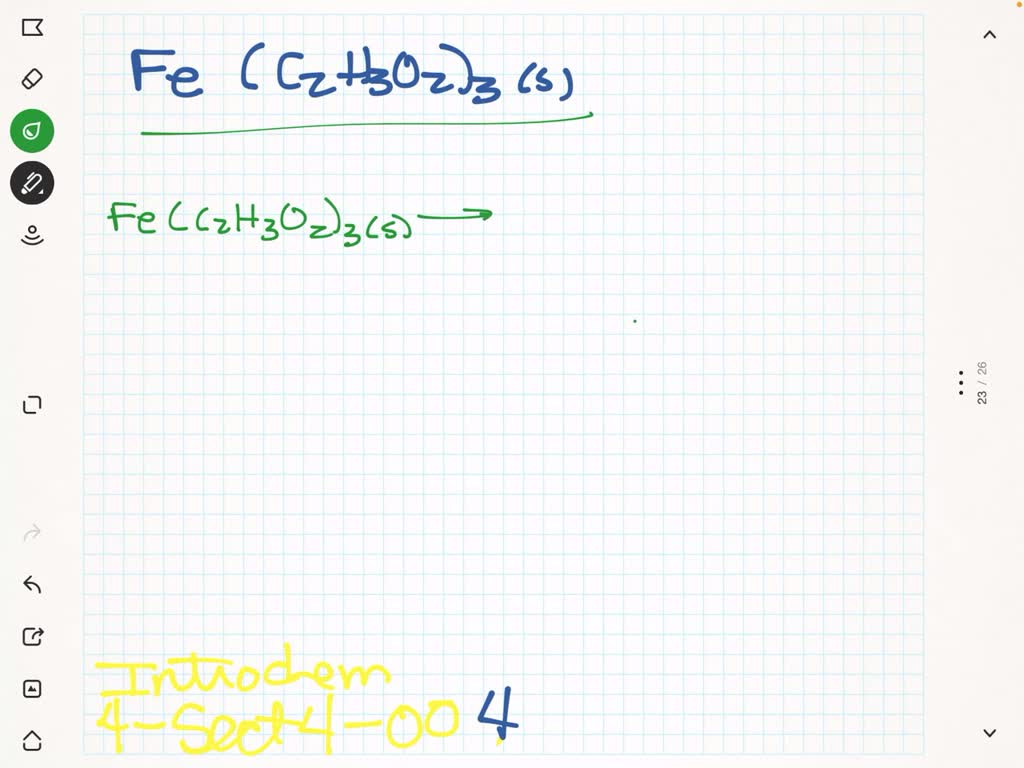 Fe (C₂H₃O₂)₃ (s)
Fe(C₂H₃O₂)₃(s) →
23 / 26
Introchem
4-Sect4-004